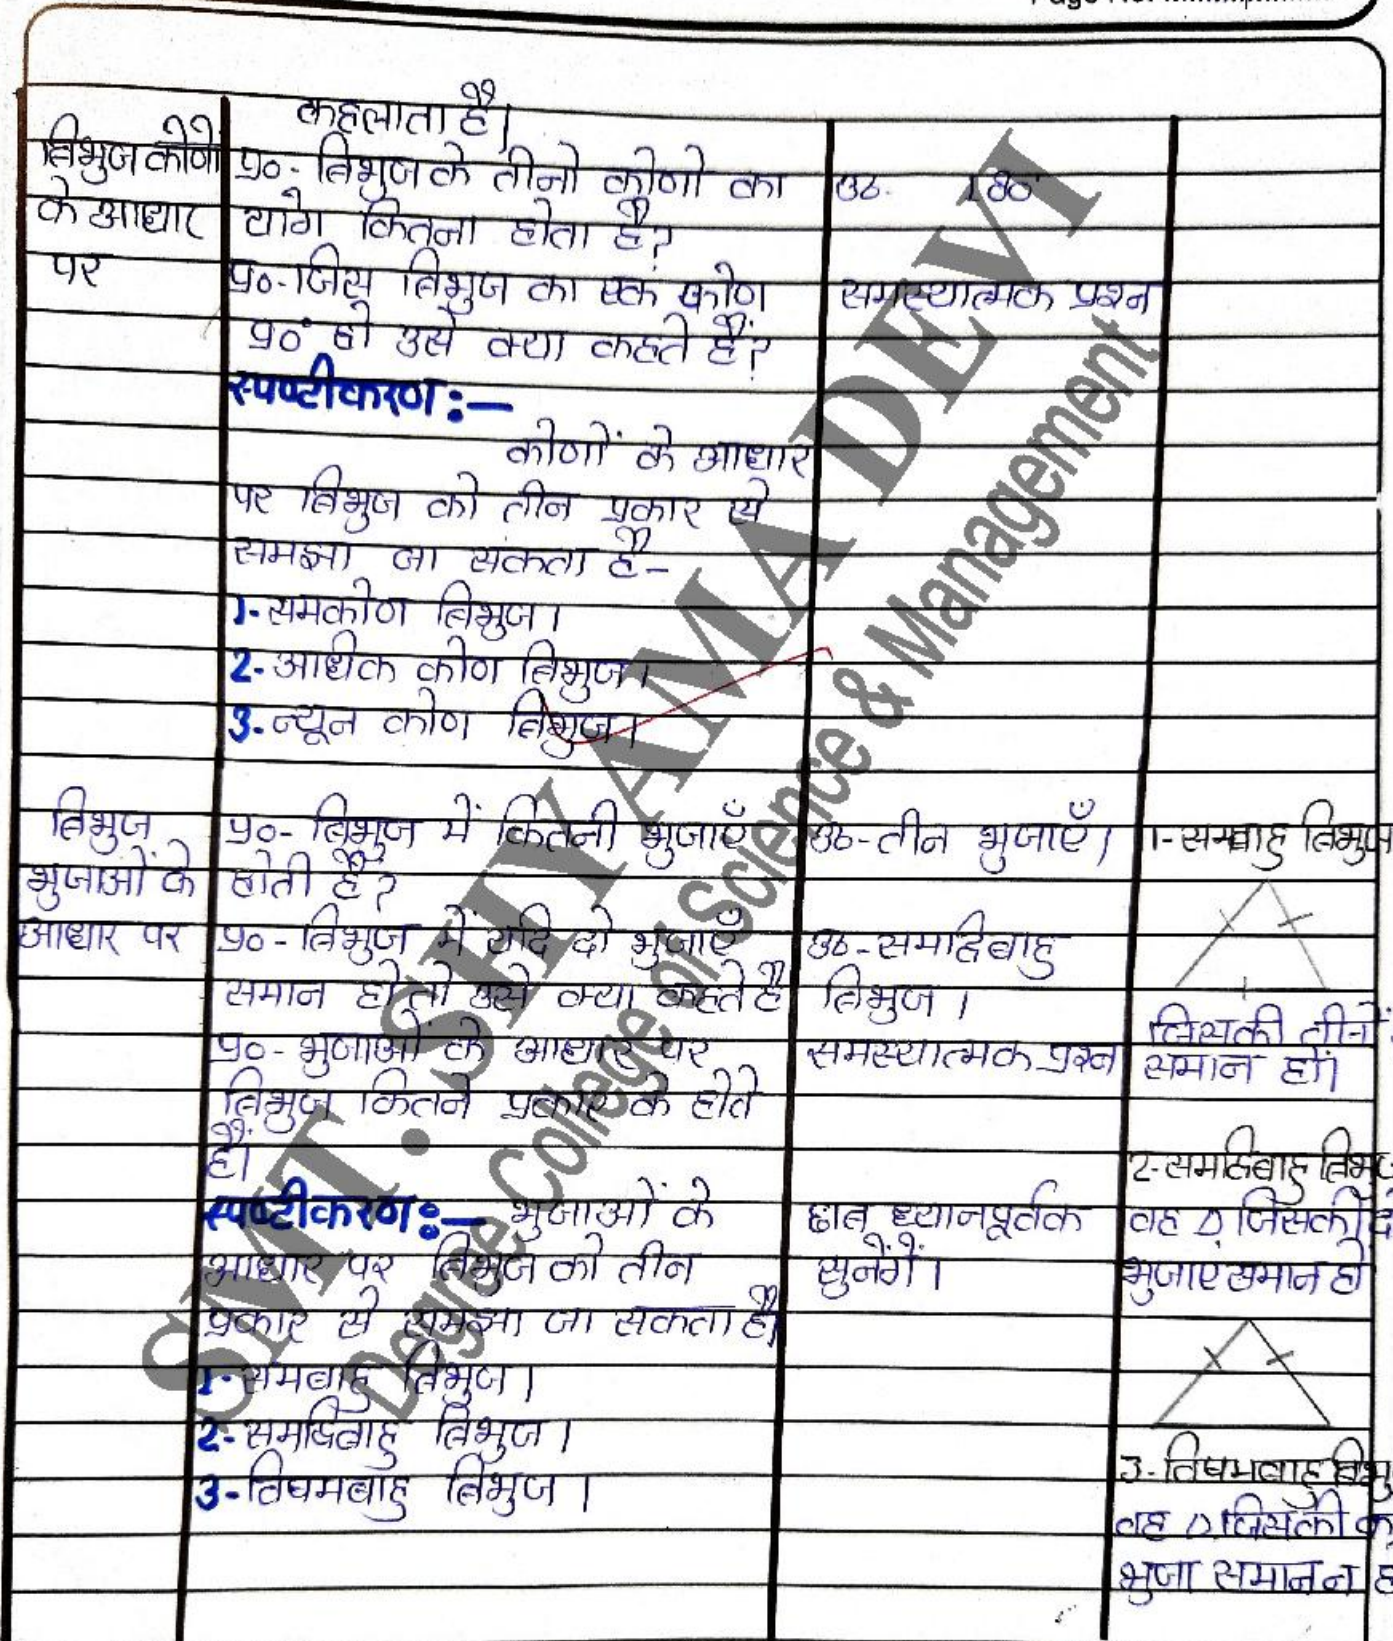 कहलाता है।
त्रिभुज कोणों
के आधार
पर
प्र०- त्रिभुज के तीनो कोणो का
योग कितना होता है?
उ०- 180°
प्र०- जिस त्रिभुज का एक कोण
९०° हो उसे क्या कहते हैं?
समस्यात्मक प्रश्न
स्पष्टीकरण :—
कोणों के आधार
पर त्रिभुज को तीन प्रकार से
समझा जा सकता है-
1- समकोण त्रिभुज।
2- अधिक कोण त्रिभुज।
3- न्यून कोण त्रिभुज।
त्रिभुज
भुजाओं के
आधार पर
प्र०- त्रिभुज में कितनी भुजाएँ
होती हैं?
उ०- तीन भुजाएँ।
प्र०- त्रिभुज में यदि दो भुजाएँ
समान हो तो उसे क्या कहते है
उ०- समद्विबाहु
त्रिभुज।
प्र०- भुजाओं के आधार पर
त्रिभुज कितने प्रकार के होते
हैं।
समस्यात्मक प्रश्न
स्पष्टीकरण :— भुजाओं के
आधार पर त्रिभुज को तीन
प्रकार से समझा जा सकता है।
1- समबाहु त्रिभुज।
2- समद्विबाहु त्रिभुज।
3- विषमबाहु त्रिभुज।
छात्र ध्यानपूर्वक
सुनेंगें।
1- समबाहु त्रिभुज
जिसकी तीनों
समान हों।
2- समद्विबाहु त्रिभुज
वह △ जिसकी दो
भुजाए समान हो
3- विषमबाहु त्रिभु
वह △ जिसकी
भुजा समान न
SMT. SHYAMA DEVI
Degree College of Science & Management